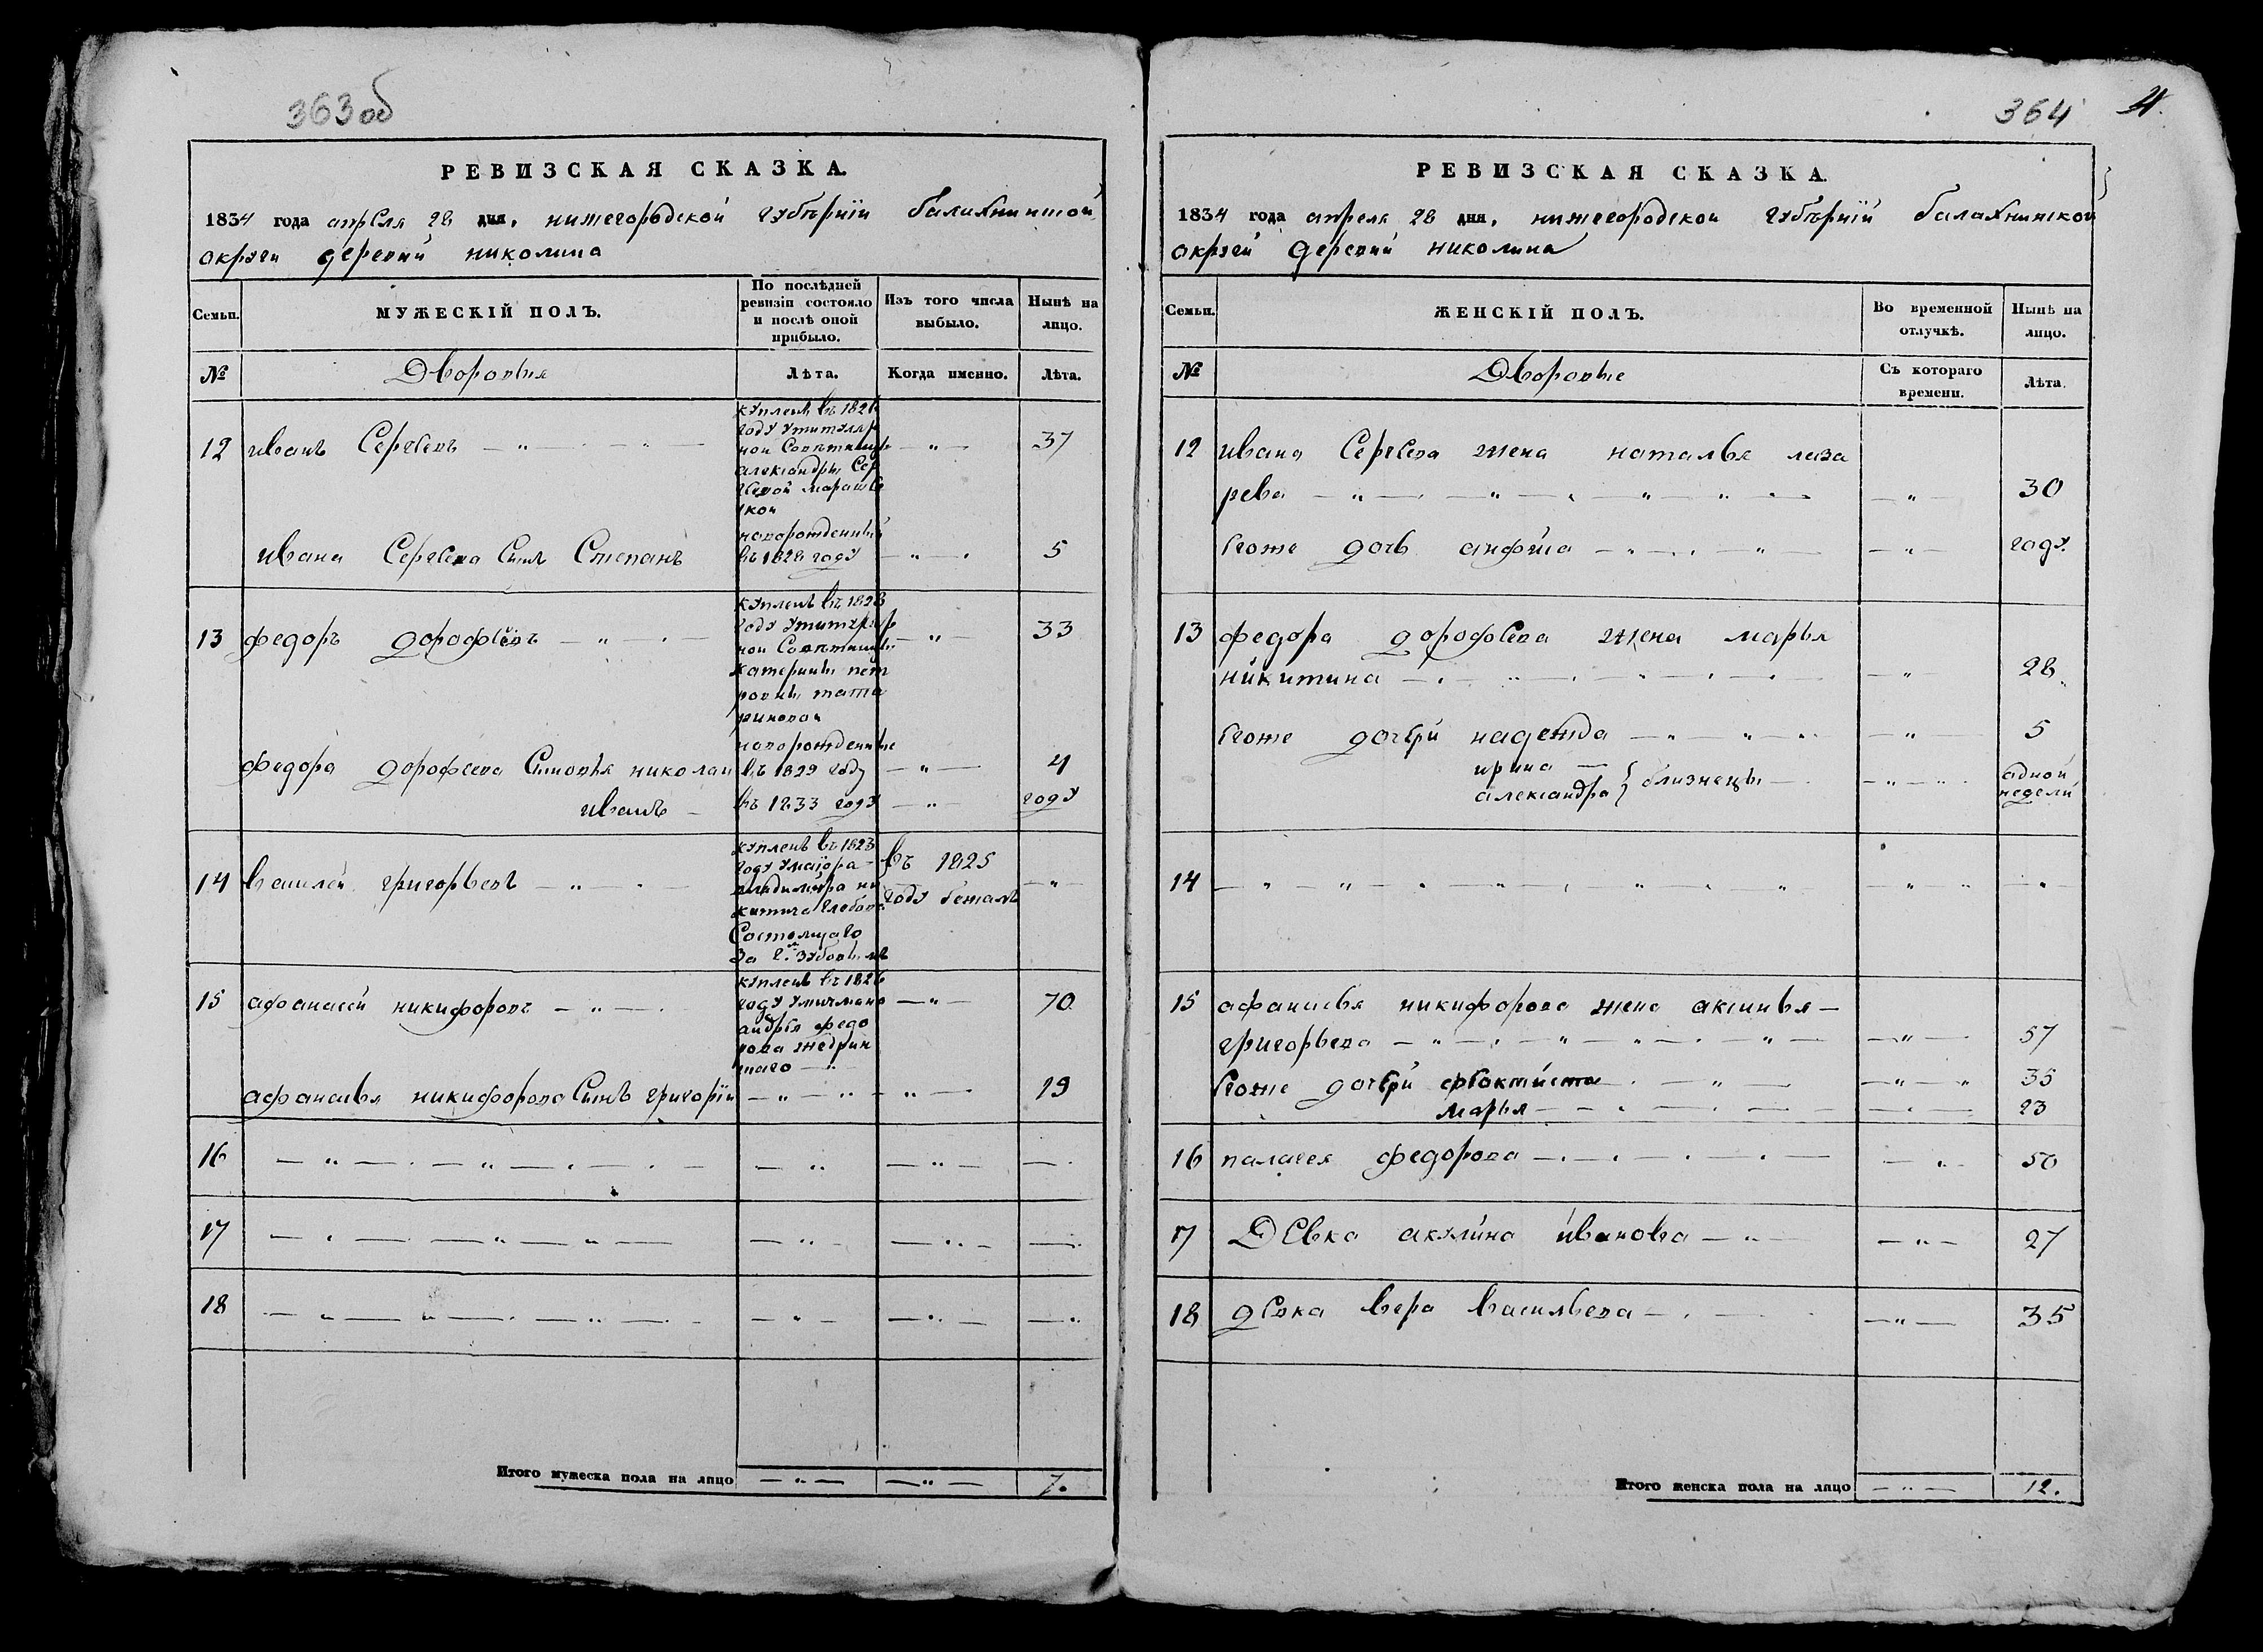 363об
РЕВИЗСКАЯ СКАЗКА.
1834 года апреля 28 дня, нижегородской губѣрнїи балахнинской
акруги деревни николина
Семьи.
МУЖЕСКІЙ ПОЛЪ.
По послѣдней
ревизіи состояло
и послѣ оной
прибыло.
Изъ того числа
выбыло.
Нынѣ на
лицо.
№
Дворовыя
Лѣта.
Когда именно.
Лѣта.
12 иванъ Сергеевъ — 37
купленъ въ 1826
году у титуляр
ной Советницы
александры Сер
геевой
ивана Сергеева Сынъ Степанъ
новорожденный
въ 1828 году
5
13 федоръ дорофеевъ — 33
купленъ въ 1828
году у титуляр
ной Советницы
катерины пет
ровны тата
риновой
федора дорофеева Сыновья николаи
новорожденные
въ 1829 году
4
иванъ — въ 1833 году — году
14 василей григорьевъ
купленъ въ 1823
году у маіора
владимѣра ни
китича глебова
Состоящаго
За г. зубовымъ
въ 1825
году бежалъ
15 афанасей никифоровъ — 70
купленъ въ 1826
году у мичмана
андрея федо
рова жедрин
скаго
афанасья никифорова Сынъ григорїи — 19
16
17
18
Итого мужеска пола на лицо — 7.
364 4.
РЕВИЗСКАЯ СКАЗКА.
1834 года апреля 28 дня, нижегородской губѣрнїи балахнинской
акруги деревни николина
Семьи.
ЖЕНСКІЙ ПОЛЪ.
Во временной
отлучкѣ.
Нынѣ на
лицо.
№
Дворовые
Съ котораго
времени.
Лѣта.
12 ивана Сергеева жена наталья лаза
рева — 30
Егоже дочь анфиса — году.
13 федора дорофеева жена марья
никитина — 28
Егоже дочери надежда — 5
ирина —
александра } близнецы — адной
недели
14
15 афанасья никифорова жена аксинья —
григорьева — 57
Егоже дочери феоктиста — 35
марья — 23
16 палагея федорова — 50
17 Девка акулина иванова — 27
18 девка вера васильева — 35
Итого женска пола на лицо — 12.